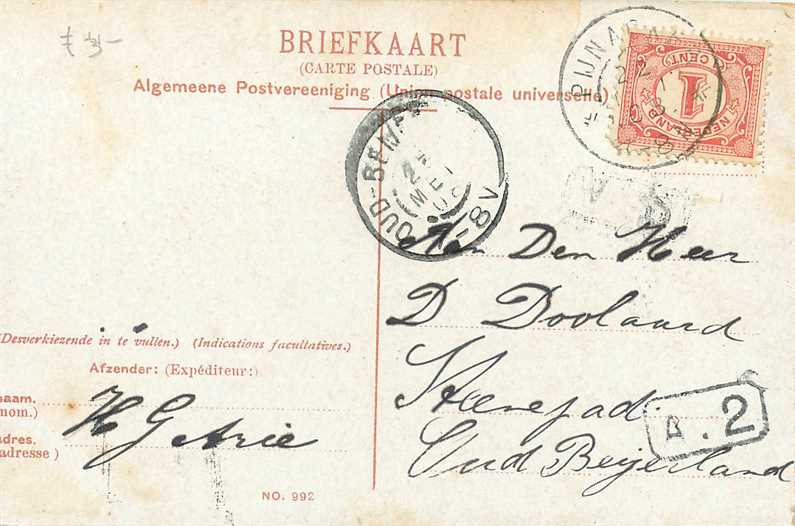 £ 3,-
BRIEFKAART
(CARTE POSTALE)
Algemeene Postvereeniging (Union postale universelle)
1
CENT
NEDERLAND
MEI
8V
Aan Den Heer
D Doolaard
Steenepad.
Oud Beijerland
A. 2
(Desverkiezende in te vullen.) (Indications facultatives.)
Afzender: (Expéditeur:)
naam.
nom.)
H G Arie
adres.
adresse)
NO. 992